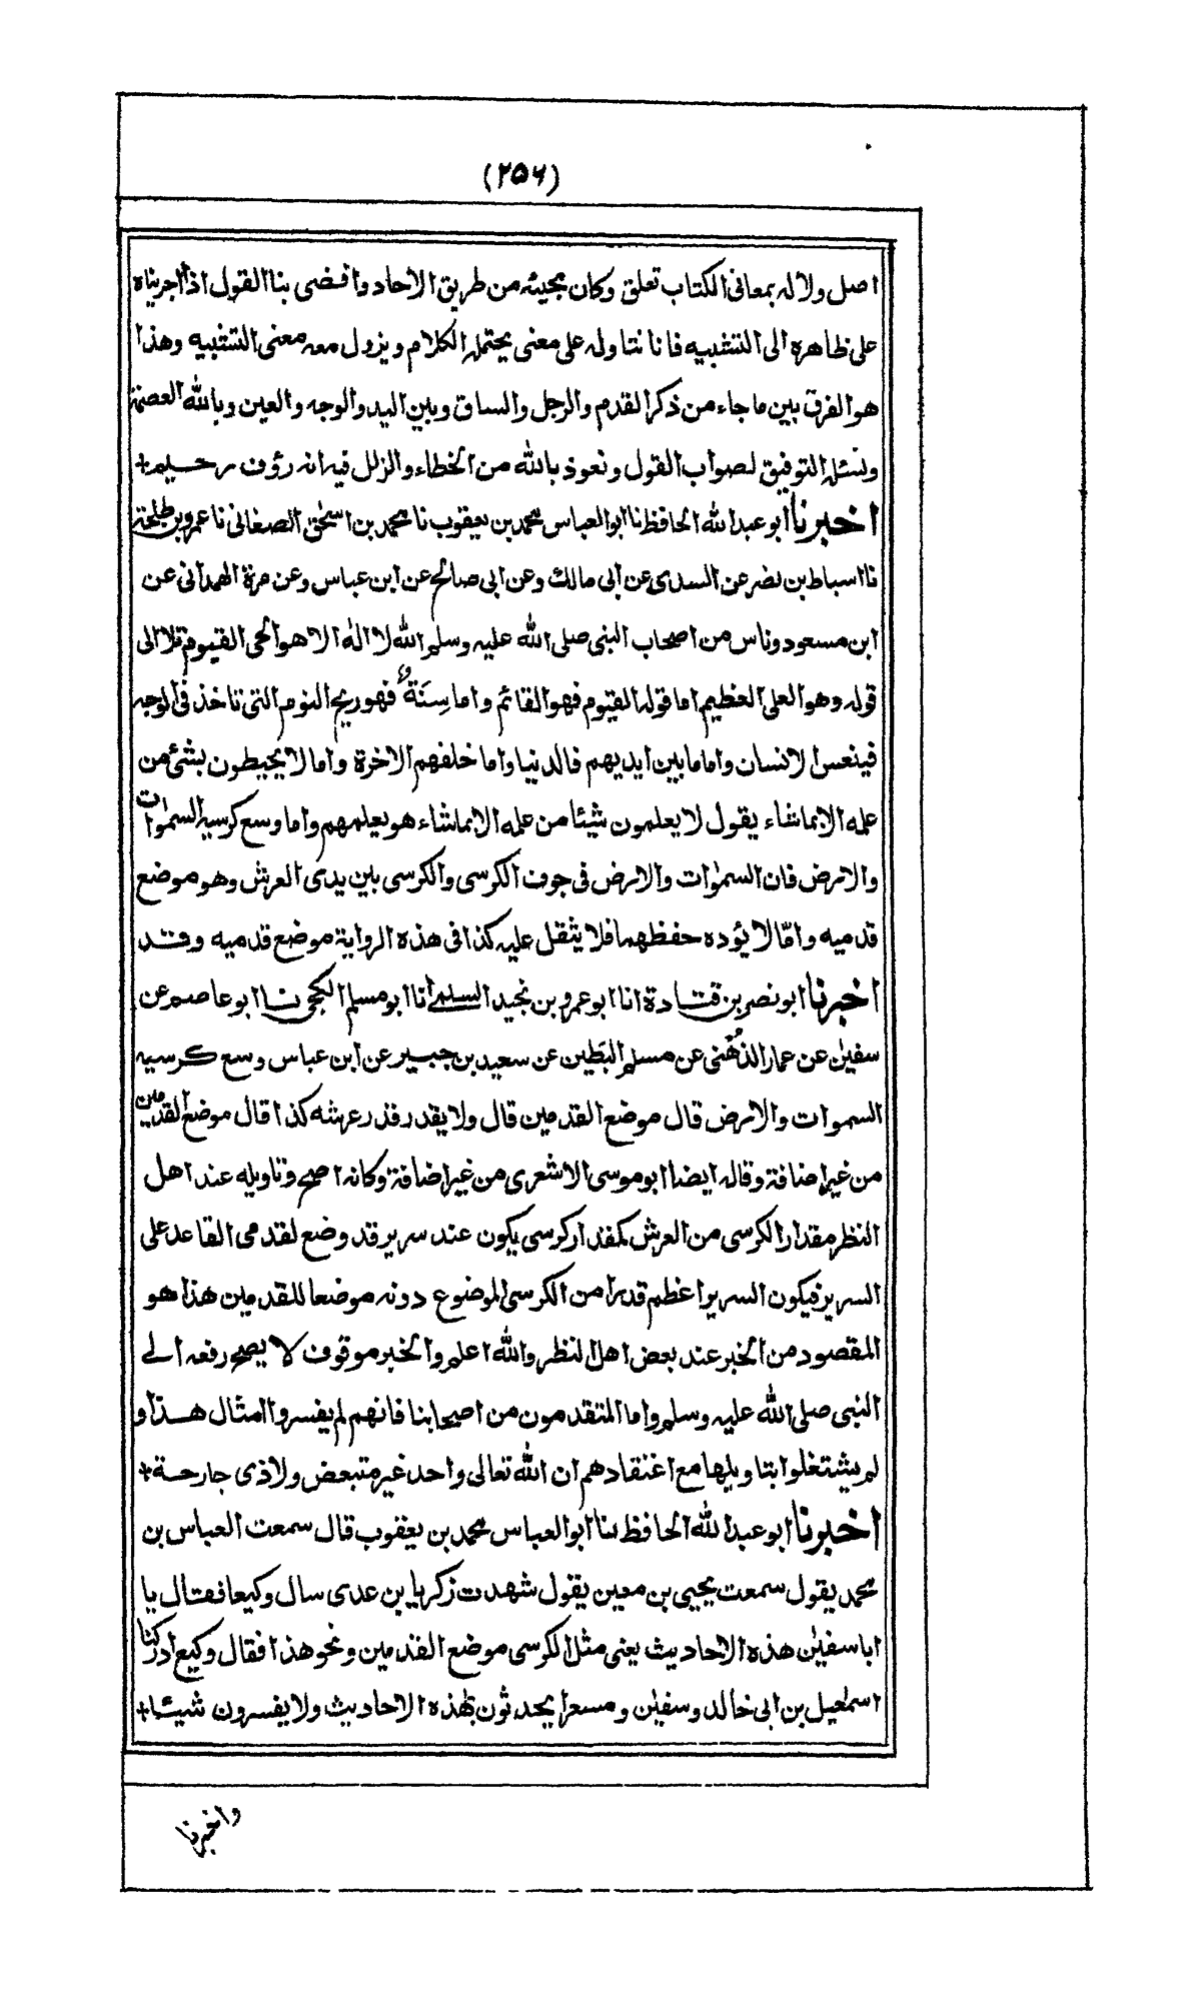 (۲۵۶)
اصل ولا له بمعانى الكتاب تعلق وكان مجيئه من طريق الاحاد وافضى بنا القول اذا اجريناه
على ظاهره الى التشبيه فانا نتاوله على معنى يحتمله الكلام ويزول معه معنى التشبيه وهذا
هو الفرق بين ما جاء من ذكر القدم والرجل والساق وبين اليد والوجه والعين وبالله العصمة
ونسئله التوفيق لصواب القول ونعوذ بالله من الخطاء والزلل فيه انه رؤف رحيم+
اخبرنا ابو عبد الله الحافظ نا ابو العباس محمد بن يعقوب نا محمد بن اسحٰق الصغانى نا عمرو بن طلحة
نا اسباط بن نصر عن السدى عن ابى مالك وعن ابى صالح عن ابن عباس وعن مرة الهمدانى عن
ابن مسعود وناس من اصحاب النبى صلى الله عليه وسلم الله لا اله الا هو الحى القيوم تلا الى
قوله وهو العلى العظيم اما قوله القيوم فهو القائم واما سِنَةٌ فهو ريح النوم التى تاخذ فى الوجه
فينعس الانسان واما ما بين ايديهم فالدنيا واما خلفهم الاخرة واما لا يحيطون بشئ من
علمه الا بما شاء يقول لا يعلمون شيئا من علمه الا بما شاء هو يعلمهم واما وسع كرسيه السمٰوات
والارض فان السمٰوات والارض فى جوف الكرسى والكرسى بين يدى العرش وهو موضع
قدميه وامّا لا يؤده حفظهما فلا يثقل عليه كذا فى هذه الرواية موضع قدميه وقد
اخبرنا ابو نصر بن قتادة انا ابو عمرو بن نجيد السلمى انا ابو مسلم الكجى نا ابو عاصم عن
سفيٰن عن عمار الدُّهْنى عن مسلم البَطين عن سعيد بن جبير عن ابن عباس وسع كرسيه
السموات والارض قال موضع القدمين قال ولا يقدر قدر عرشه كذا قال موضع القدمين
من غير اضافة وقاله ايضا ابو موسى الاشعرى من غير اضافة وكانه اصح وتاويله عند اهل
النظر مقدار الكرسى من العرش كمقدار كرسى يكون عند سرير قد وضع لقدمى القاعد على
السرير فيكون السرير اعظم قدرا من الكرسى الموضوع دونه موضعا للقدمين هذا هو
المقصود من الخبر عند بعض اهل النظر والله اعلم والخبر موقوف لا يصح رفعه الى
النبى صلى الله عليه وسلم واما المتقدمون من اصحابنا فانهم لم يفسروا امثال هذا و
لم يشتغلوا بتاويلها مع اعتقادهم ان الله تعالى واحد غير متبعض ولا ذى جارحة+
اخبرنا ابو عبد الله الحافظ ثنا ابو العباس محمد بن يعقوب قال سمعت العباس بن
محمد يقول سمعت يحيى بن معين يقول شهدت زكريا بن عدى سال وكيعا فقال يا
ابا سفيٰن هذه الاحاديث يعنى مثل الكرسى موضع القدمين ونحو هذا فقال وكيع ادركنا
اسمٰعيل بن ابى خالد وسفيٰن ومسعرا يحدثون بهذه الاحاديث ولا يفسرون شيئا+
واخبرنا